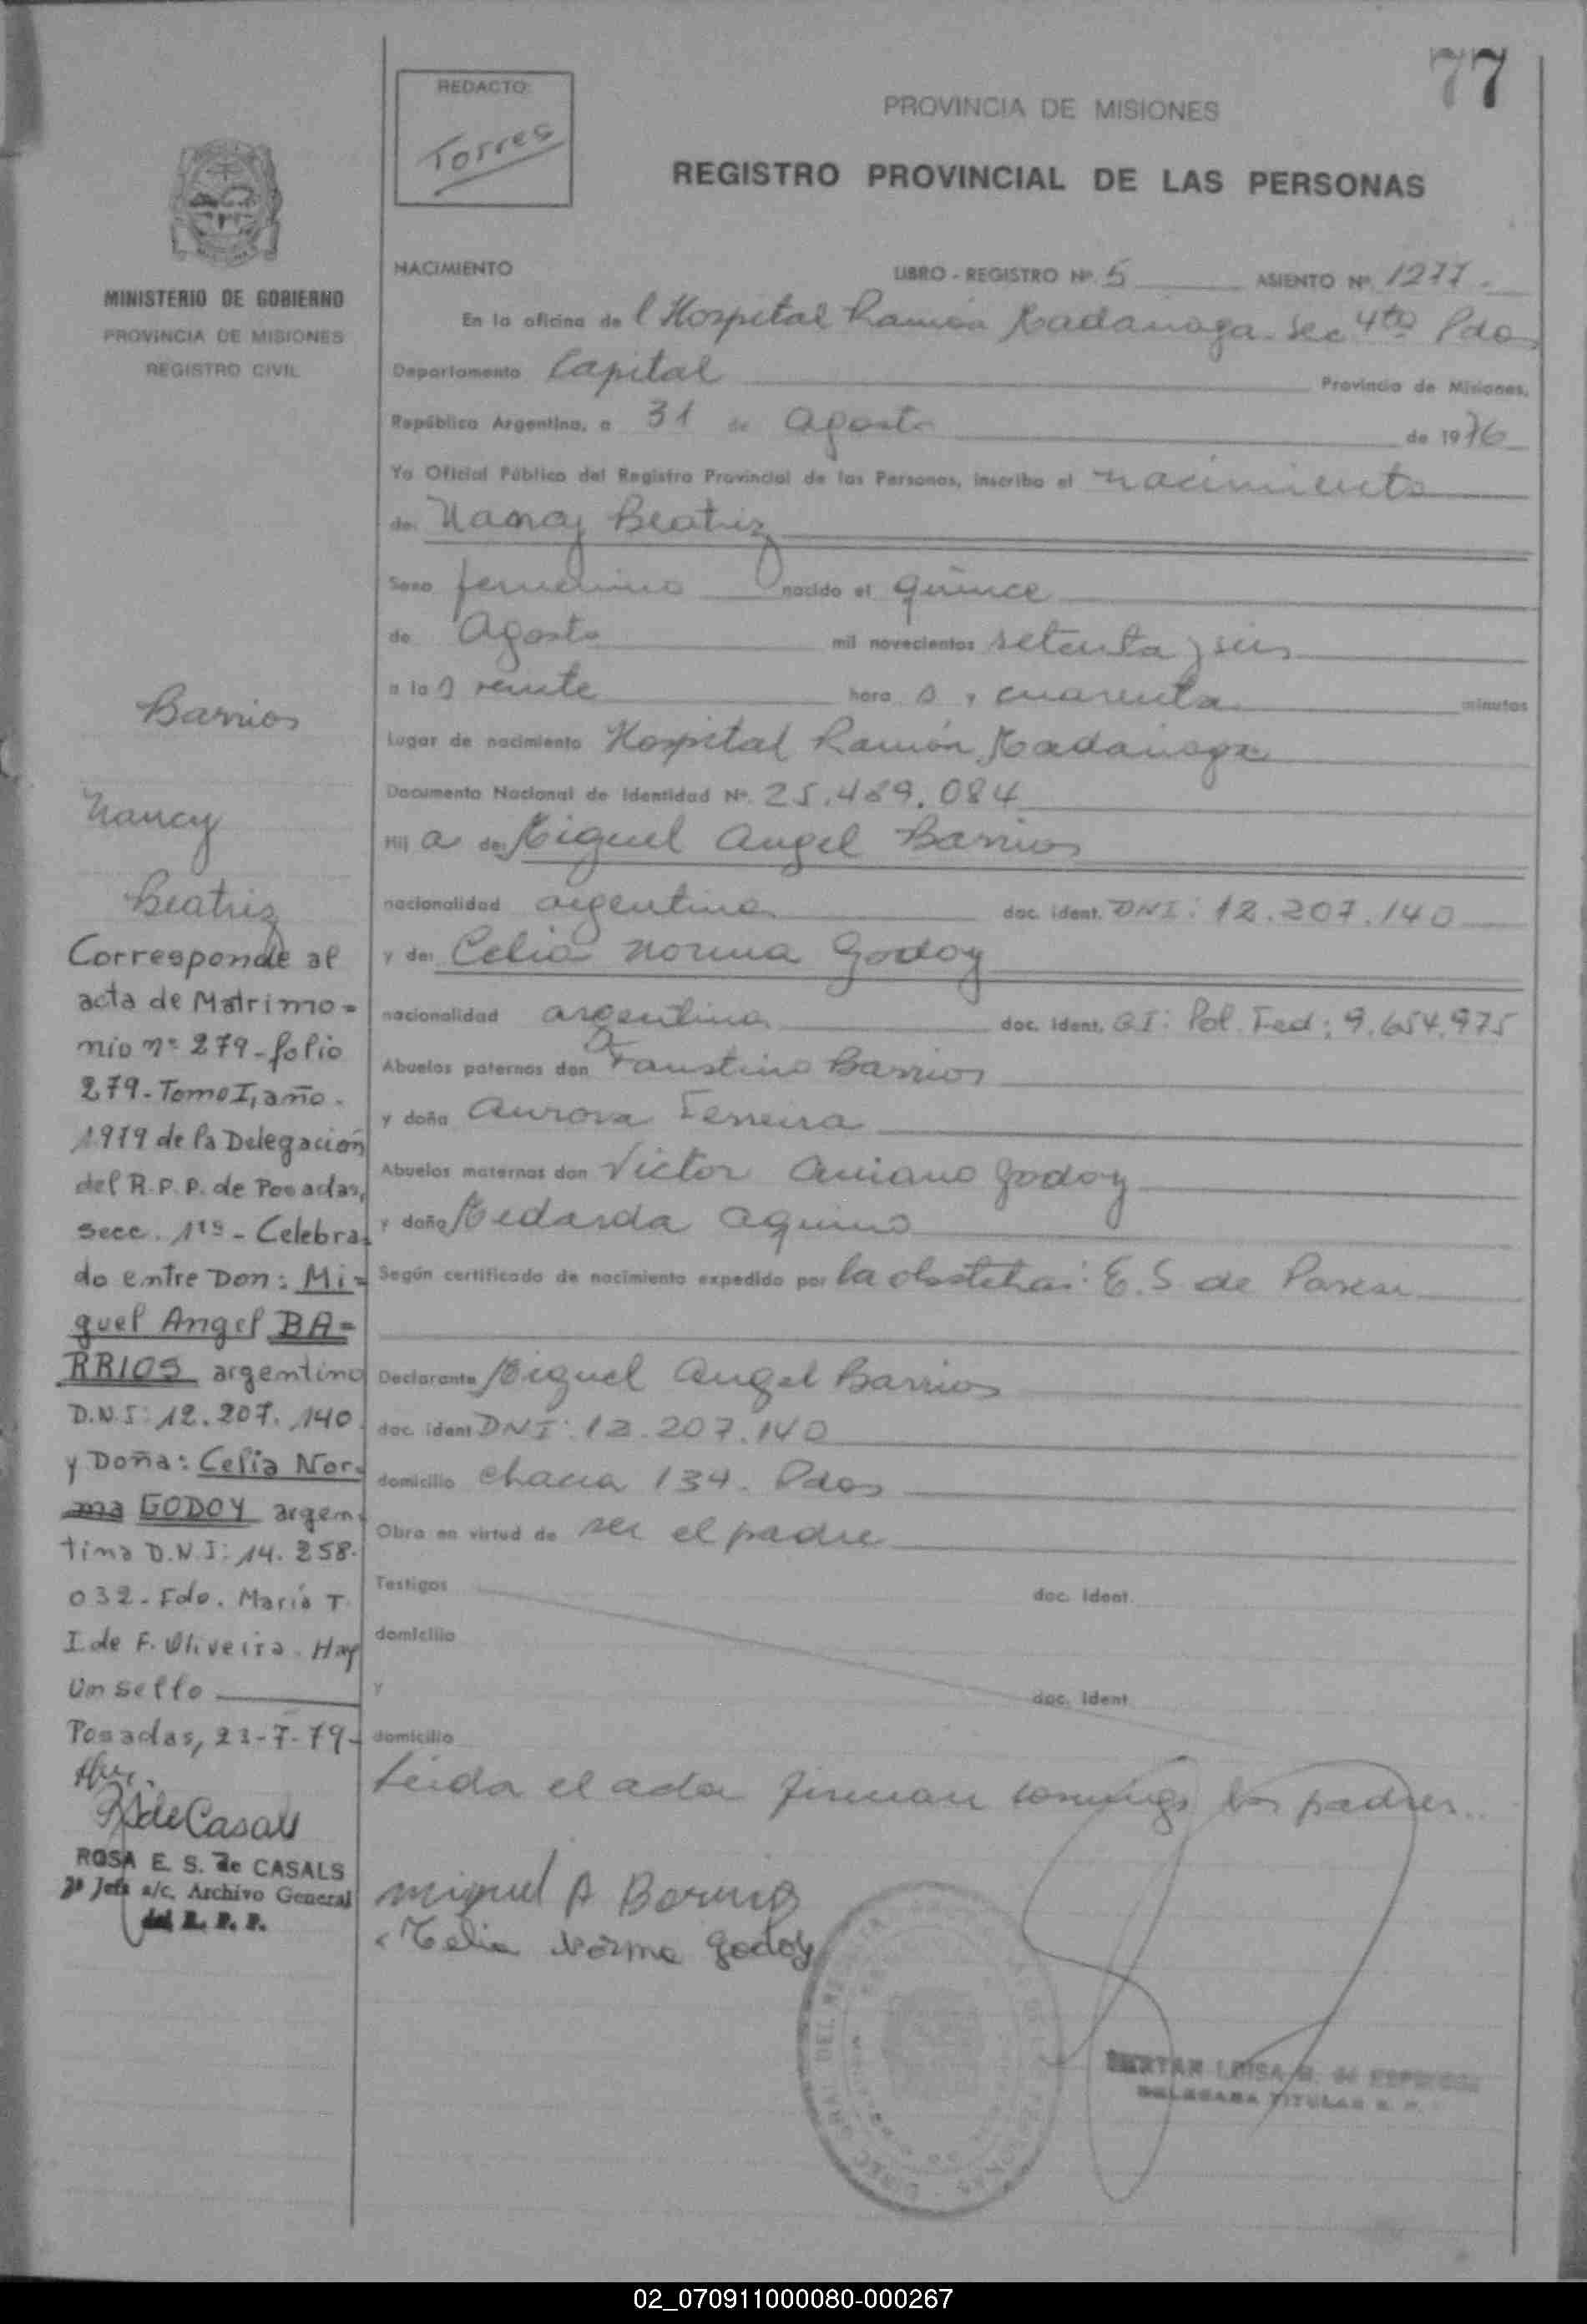 77
REDACTO:
Torres
PROVINCIA DE MISIONES
REGISTRO PROVINCIAL DE LAS PERSONAS
MINISTERIO DE GOBIERNO
PROVINCIA DE MISIONES
REGISTRO CIVIL
NACIMIENTO LIBRO - REGISTRO Nº 5 ASIENTO Nº 1277.
En la oficina de l Hospital Ramón Madariaga. Sec 4ta Pdas
Departamento Capital Provincia de Misiones,
República Argentina, a 31 de Agosto de 1976
Yo Oficial Público del Registro Provincial de las Personas, inscribo el nacimiento
de: Nancy Beatriz
Sexo femenino nacido el quince
de Agosto mil novecientos setenta y seis
a las veinte hora s, cuarenta minutos
Lugar de nacimiento Hospital Ramón Madariaga
Documento Nacional de Identidad Nº 25.489.084
Hij a de: Miguel Angel Barrios
nacionalidad argentino doc. ident. DNI: 12.207.140
y de: Celia Norma Godoy
nacionalidad argentina doc. ident. CI: Pol. Fed: 9.654.975
Abuelos paternos don Faustino Barrios
y doña Aurora Ferreira
Abuelos maternos don Victor Aniano Godoy
y doña Medarda Aquino
Según certificado de nacimiento expedido por la obstetra: E. S de
Declarante Miguel Angel Barrios
doc. ident DNI: 12.207.140
domicilio Chacra 134. Pdas
Obra en virtud de ser el padre
Testigos doc. ident.
domicilio
y doc. ident
domicilio
Leida el acta firman conmigo los padres..
Miguel A Barrios
Celia Norma Godoy
Barrios
Nancy
Beatriz
Corresponde al
acta de Matrimo=
nio nº 279-folio
279-Tomo I, año-
1979 de la Delegación
del R.P.P. de Posadas,
Secc. 1ra - Celebra
do entre Don: Mi=
guel Angel BA=
RRIOS argentino
D.N.I: 12.207.140
y Doña: Celia Nor-
ma GODOY argen-
tina D.N.I: 14.258.
032-Fdo. María T.
I de F. Oliveira. Hay
un sello
Posadas, 23-7-79-
R S de Casals
ROSA E. S. de CASALS
2º Jefe a/c. Archivo General
del R. P. P.
DELEGADA TITULAR
02_070911000080-000267